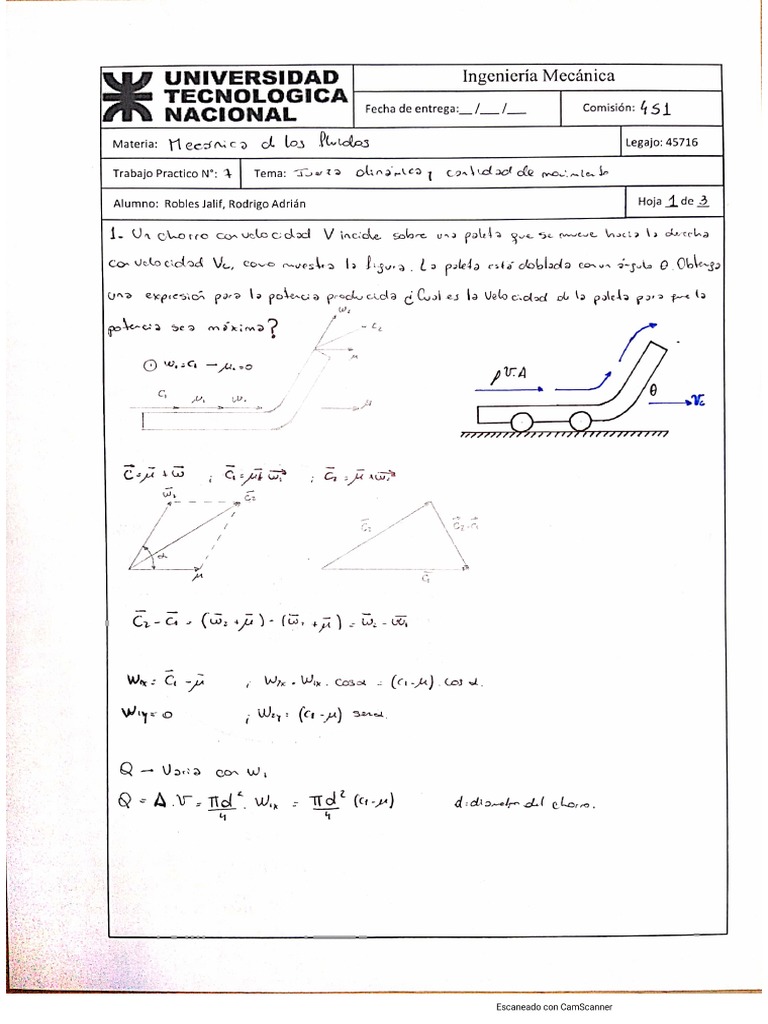 UNIVERSIDAD
TECNOLOGICA
NACIONAL
Ingeniería Mecánica
Fecha de entrega:__/___/__
Comisión: 4S1
Materia: Mecánica d los fluidos
Legajo: 45716
Trabajo Practico N°: 7
Tema: dinámica y cantidad de movimiento
Alumno: Robles Jalif, Rodrigo Adrián
Hoja 1 de 3
1- Un chorro con velocidad V incide sobre una paleta que se mueve hacia la derecha
con velocidad Vc, como muestra la figura. La paleta está doblada con un ángulo θ. Obtenga
una expresión para la potencia producida ¿Cual es la velocidad de la paleta para que la
potencia sea máxima?
w₂
c₂
μ
w₁=c₁-μ₁=0
C₁ μ₁ w₁ μ
ρ V.A
θ
Vc
C̄=μ̄+w̄ ; C̄₁=μ̄+w̄₁ ; C̄₂=μ̄+w̄₂
w̄₂ C̄₂
α
μ
C̄₂
C̄₂-C̄₁
C̄₁
C̄₂-C̄₁=(w̄₂+μ̄)-(w̄₁+μ̄)=w̄₂-w̄₁
W₁x=C̄₁-μ̄ ; W₂x=W₁x.cosα=(c₁-μ).cosα.
W₁y=0 ; W₂y=(c₁-μ) senα.
Q → Varia con W₁
Q = A.V = πd²/4 . W₁x = πd²/4 (c₁-μ) d: diametro del chorro.
Escaneado con CamScanner